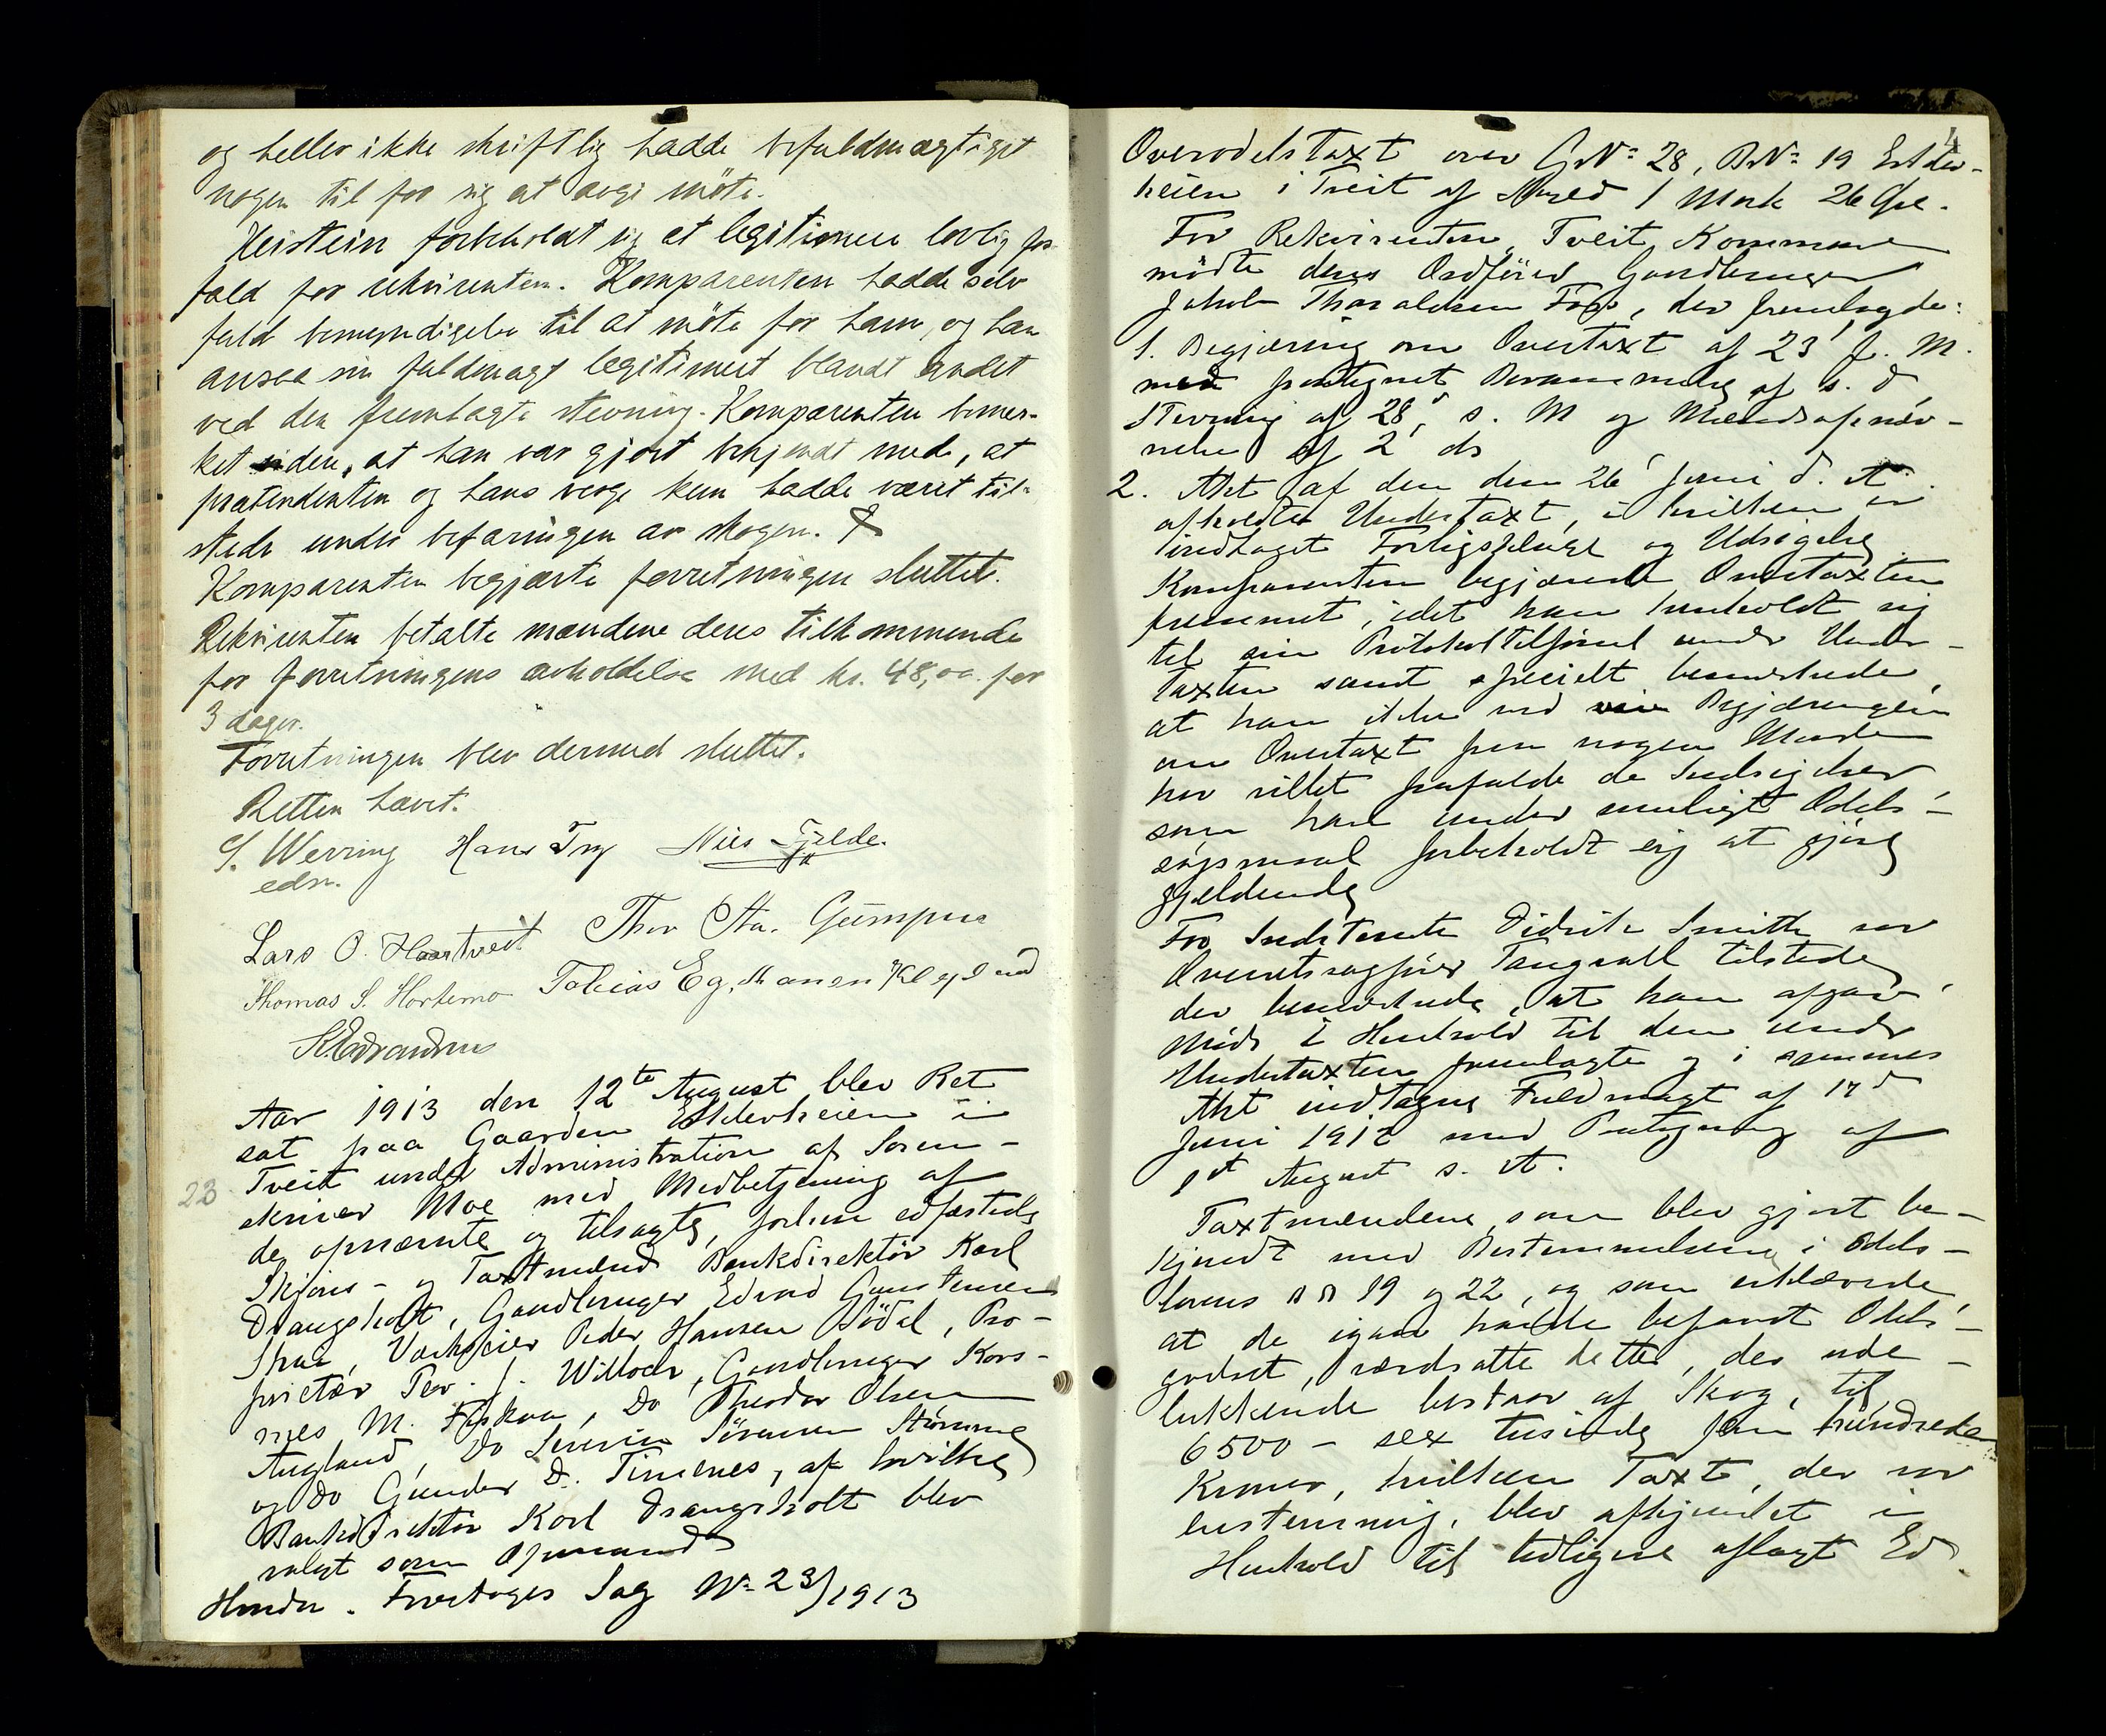 og heller ikke skriftlig hadde befuldmægtiget
nogen til for sig at avgi møte.
Heistein forbeholdt sig at legitimere lovlig for-
fald for rekvirenten. Komparenten hadde selv
fuld bemyndigelse til at møte for ham, og han
ansaa sin fuldmagt legitimert blandt andet
ved den fremlagte stevning. Komparenten bemer-
ket siden, at han var gjort bekjendt med, at
prætendenten og hans verge kun hadde været til-
stede under befaringen av skogen.
Komparenten begjærte forretningen sluttet.
Rekvirenten betalte mændene deres tilkommende
for forretningens avholdelse med kr. 48,00 for
3 dager.
Forretningen blev dermed sluttet.
Retten hævet.
S. Werring Hans Try Nils Fjelde.
edsv.
Lars O. Haartveit Thor Sta. Gumpen
Thomas S. Hortemo Tobias Eg. Kleplund
Aar 1913 den 12te August blev Ret
sat paa Gaarden Elderheien i
Tveit under Administration af Soren-
23
skriver Moe med Medbetjening af
de opnævnte og tilsagte, forhen edfæstede
Skjøns- og Taxtmænd Bankdirektør Karl
Drangsholt, Gaardbruger Edvard Gunstensen
Strai, Værkseier Peder Hansen Bødal, Pro-
prietær Ter. J. Willoch, Gaardbruger Kors-
nes M. Fiskaa, Do Theodor Olsen
Augland, Do Severin Sørensen Strømme
og Do Gunder D. Timenes, af hvilke
Bankdirektør Karl Drangsholt blev
valgt som Opmand
Herunder. Foretoges Sag No 23/1913
4
Overodelstaxt over GNo 28, BNo 19 Eldev-
heien i Tveit af Skyld 1 Mark 26 Øre.
For Rekvirenten, Tveit Kommune
mødte deres Ordfører Gaardbruger
Jakob Thoraldsen Foss, der fremlagde:
1. Begjæring om Overtaxt af 23' f. M.
med paategnet Berammelse af s. D.
Stevning af 28' s. M og Mændsopnæv-
nelse af 2' ds
2. Akt af den den 26' Juni d. A.
afholdte Undertaxt, i hvilken er
indtaget Forligsklage og Udsigelse
Komparenten begjærede Overtaxten
fremmet, idet han henholdt sig
til sin Protokoltilførsel under Under-
taxten samt specielt bemærkede,
at han ikke ved Begjæringen
om Overtaxt paa nogen Maade
har villet frafalde de Indsigelser
som han under muligt Odels-
søgsmaal forbeholdt sig at gjøre
gjældende
For Indstevnte Didrik Smith var
Overretssagfører Tangvall tilstede
der bemærkede, at han afgav
Møde i Henhold til den under
Undertaxten fremlagte og i sammes
Akt indtagne Fuldmagt af 17d
Juni 1912 med Paategning af
1st August s. A.
Taxtmændene, som blev gjort be-
kjendt med Bestemmelserne i Odels-
lovens §§ 19 og 22, og som erklærede,
at de igaar havde befaret Odels-
godset, værdsatte dette, der ude-
lukkende bestaar af Skog, til
6500 - sex tusinde fem hundrede
Kroner, hvilken Taxt, der var
enstemmig, blev afhjemlet i
Henhold til tidligere aflagt Ed.